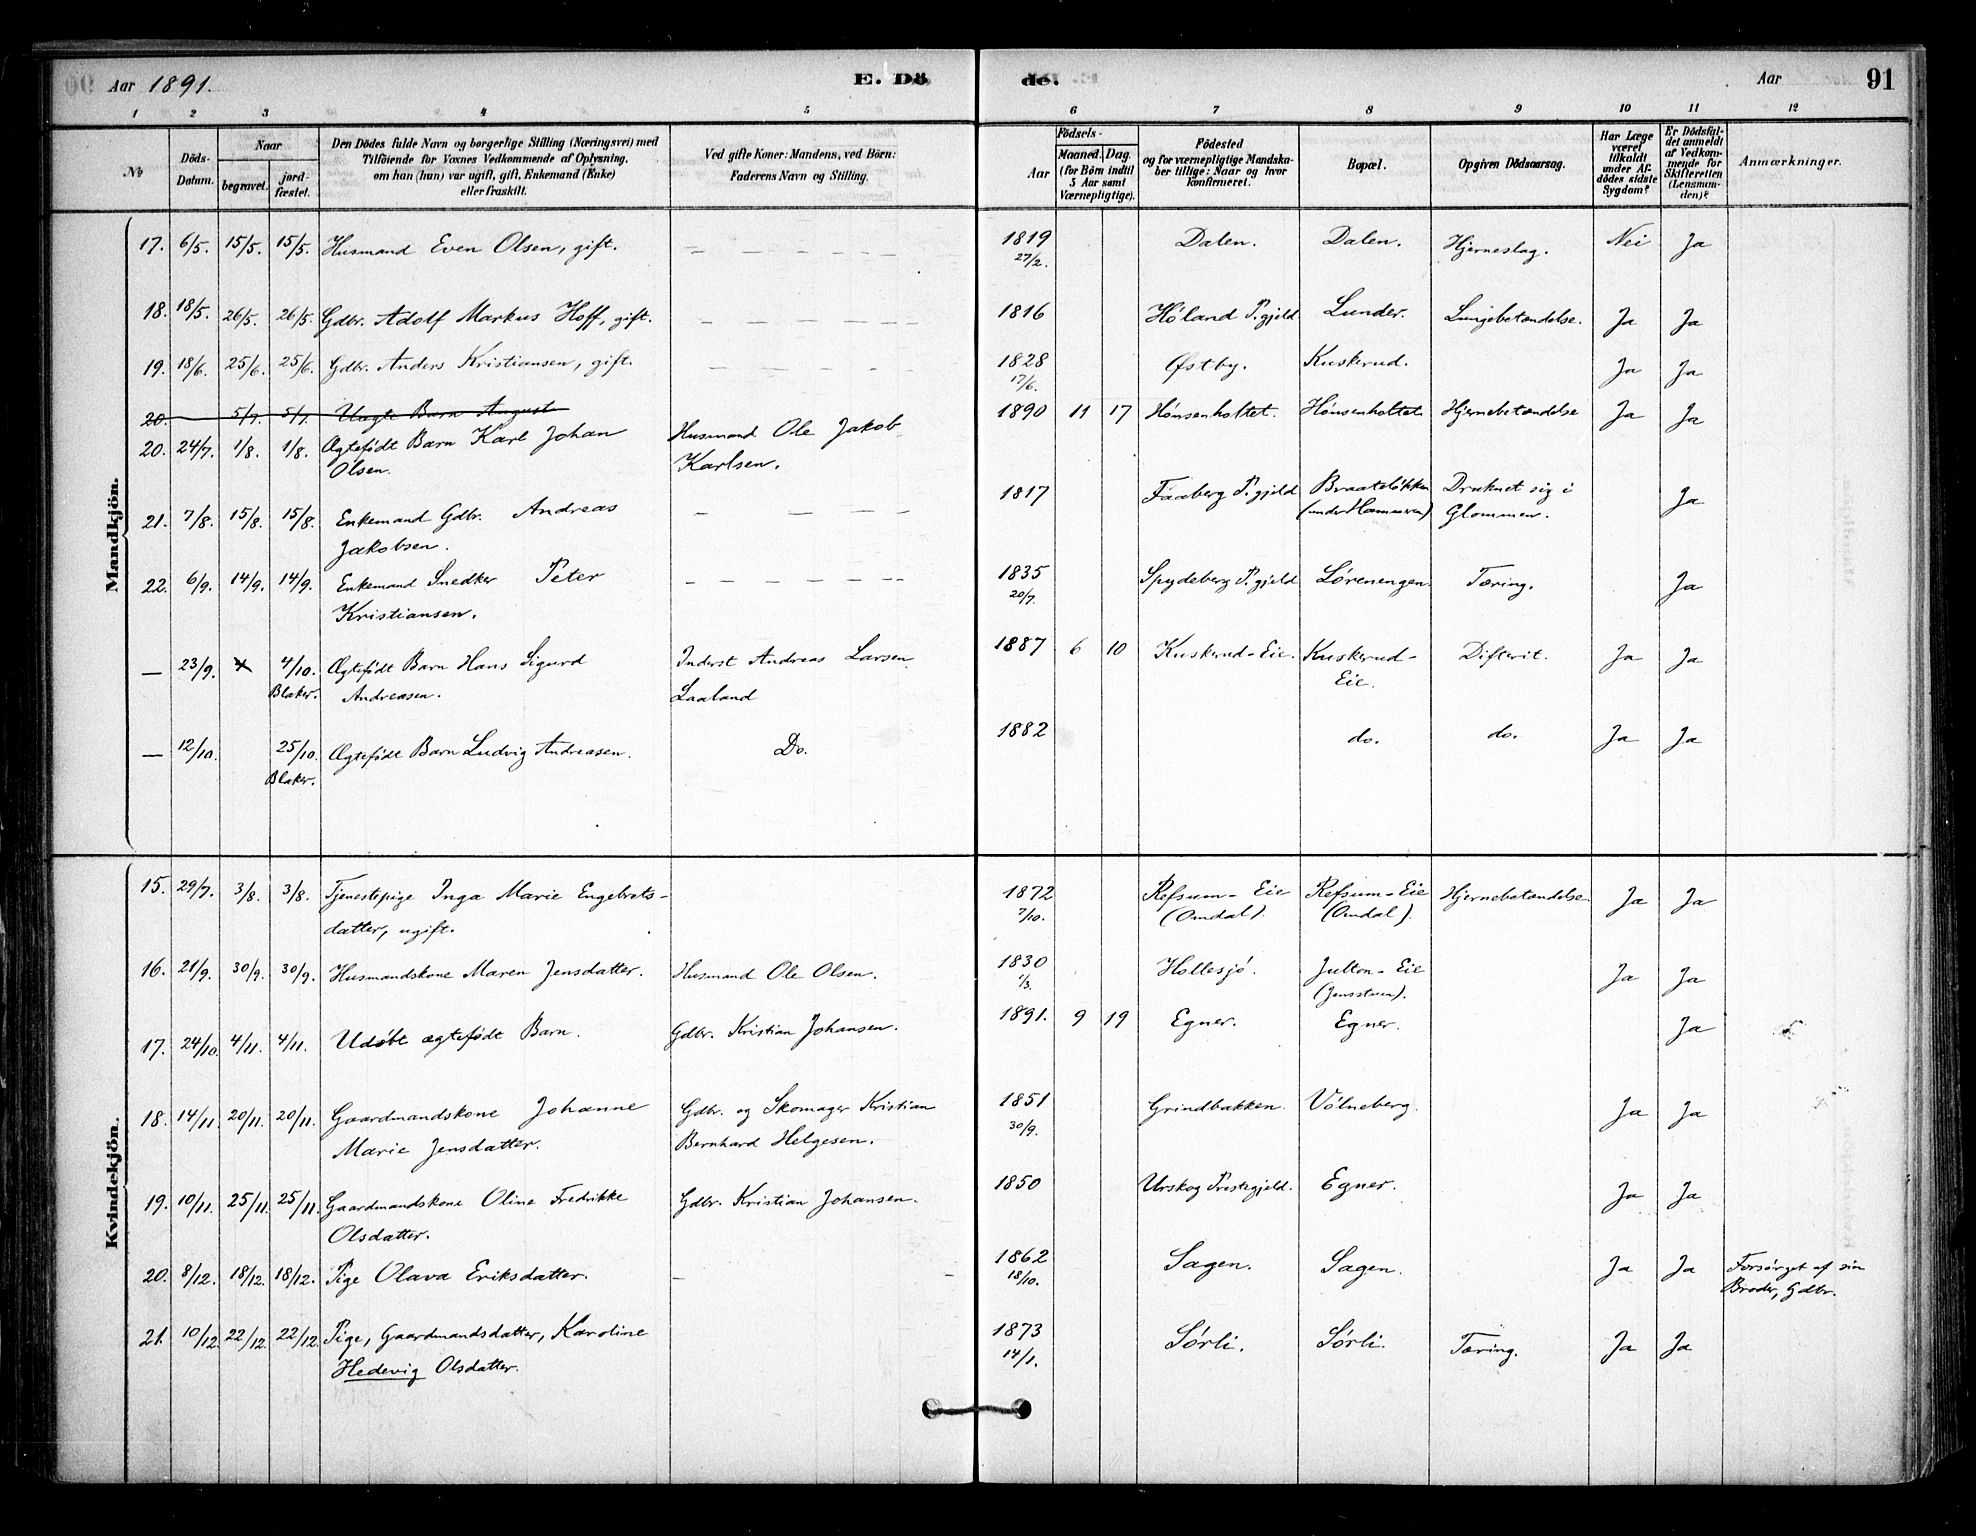 Aar 1891. E. Dö de. Aar 91
1 2 3 4 5 6 7 8 9 10 11 12
No Döds-Datum. Naar begravet. jordfæstet. Den Dödes fulde Navn og borgerlige Stilling (Næringsvei) med Tilföiende for Voxnes Vedkommende af Oplysning, om han (hun) var ugift, gift, Enkemand (Enke) eller fraskilt. Ved gifte Koner: Mandens, ved Börn: Faderens Navn og Stilling. Födsels- Aar Maaned. Dag. (for Börn indtil 5 Aar samt Værnepligtige). Födested og for værnepligtige Mandskaber tillige: Naar og hvor konfirmeret. Bopæl. Opgiven Dödsaarsag. Har Læge været tilkaldt under Afdödes sidste Sygdom? Er Dödsfaldet anmeldt af Vedkommende for Skifteretten (Lensmanden)? Anmærkninger.
Mandkjön.
17. 6/5. 15/5. 15/5. Husmand Even Olsen, gift. — — — — — — 1819 27/2. Dalen. Dalen. Hjerneslag. Nei Ja
18. 18/5. 26/5. 26/5. Gdbr. Adolf Markus Hoff, gift. — — — — — — 1816 Höland P.gjeld Lunder. Lungebetændelse. Ja Ja
19. 18/6. 25/6. 25/6. Gdbr. Anders Kristiansen, gift. — — — — — 1828 17/6. Østby. Kuskerud. Ja Ja
20. 5/7. 5/7. Uægte Barn August
20. 24/7. 1/8. 1/8. Ægtefödt Barn Karl Johan Husmand Ole Jakob 1890 11 17 Hönsenholtet. Hönsenholtet Hjernebetændelse Ja Ja
Olsen. Karlsen.
21. 7/8. 15/8. 15/8. Enkemand Gdbr. Andreas — — — — — 1817 Faaberg P.gjeld Braatelökken Druknet sig i Ja
Jakobsen. (under Hammeren) Glommen.
22. 6/9. 14/9. 14/9. Enkemand Snedker Peter — — — — — — 1835 20/7. Spydeberg P.gjeld Lörenengen. Tæring. Ja
Kristiansen.
— 23/9. 4/10. Ægtefödt Barn Hans Sigurd Inderst Andreas Larsen 1887 6 10 Kuskerud-Eie. Kuskerud- Difterit. Ja Ja
Blaker. Andreasen. Laaland Eie.
— 12/10. 25/10. Ægtefödt Barn Ludvig Andreasen. Do. 1882 do. do. Ja Ja
Blaker.
Kvindekjön.
15. 29/7. 3/8. 3/8. Tjenestepige Inga Marie Engebrets- 1872 7/10. Refsum-Eie Refsum-Eie Hjernebetændelse. Ja Ja
datter, ugift. (Omdal). (Omdal).
16. 21/9. 30/9. 30/9. Husmandskone Maren Jensdatter. Husmand Ole Olsen. 1830 1/3. Hollesjö. Julton-Eie Ja Ja
(Jensstuen).
17. 24/10. 4/11. 4/11. Udöbt ægtefödt Barn. Gdbr. Kristian Johansen. 1891. 9 19 Egner. Egner. Ja
18. 14/11. 20/11. 20/11. Gaardmandskone Johanne Gdbr. og Skomager Kristian 1851 30/9. Grindbakken. Völneberg. Ja Ja
Marie Jensdatter. Bernhard Helgesen.
19. 10/11. 25/11. 25/11. Gaardmandskone Oline Fredrikke Gdbr. Kristian Johansen. 1850 Urskog Prestegjeld. Egner. Ja Ja
Olsdatter.
20. 8/12. 18/12. 18/12. Pige Olava Eriksdatter. — — 1862 18/10. Sagen. Sagen. Ja Ja Forsörget af sin
Broder, Gdbr.
21. 10/12. 22/12. 22/12. Pige, Gaardmandsdatter, Karoline 1873 14/1. Sörli. Sörli. Tæring. Ja Ja
Hedevig Olsdatter.